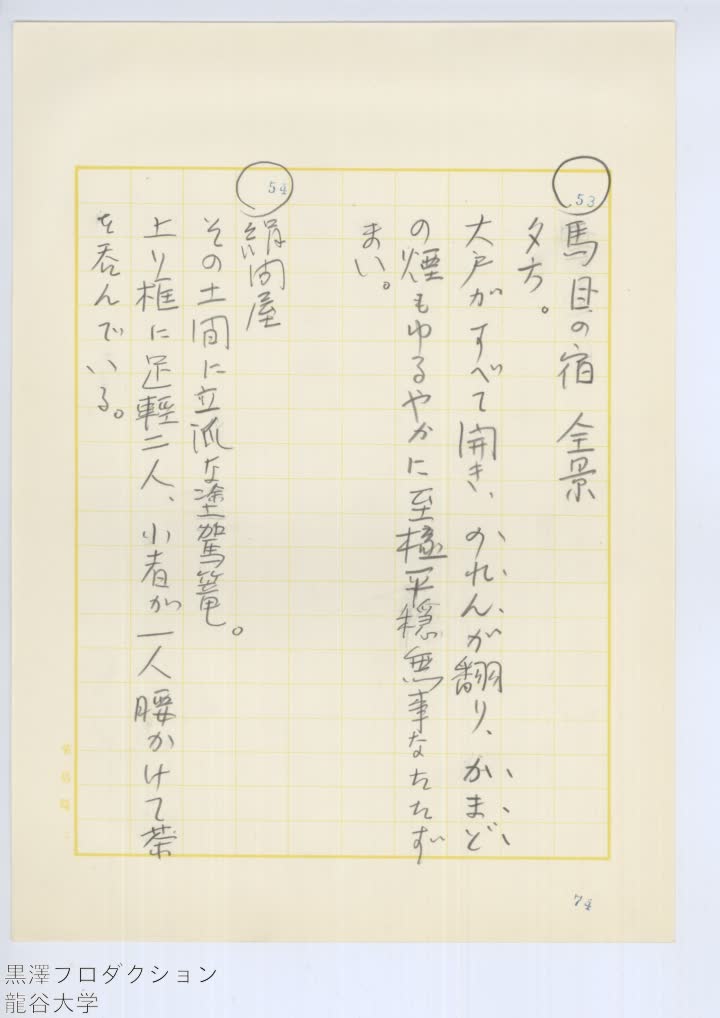 53
馬目の宿 全景
夕方。
大戸がすべて開き、のれんが翻り、かまど
の煙もゆるやかに至極平穏無事なたたず
まい。
54
絹問屋
その土間に立派な塗駕籠。
上り框に足軽二人、小者が一人腰かけて茶
を呑んでいる。
74
黒澤プロダクション
龍谷大学